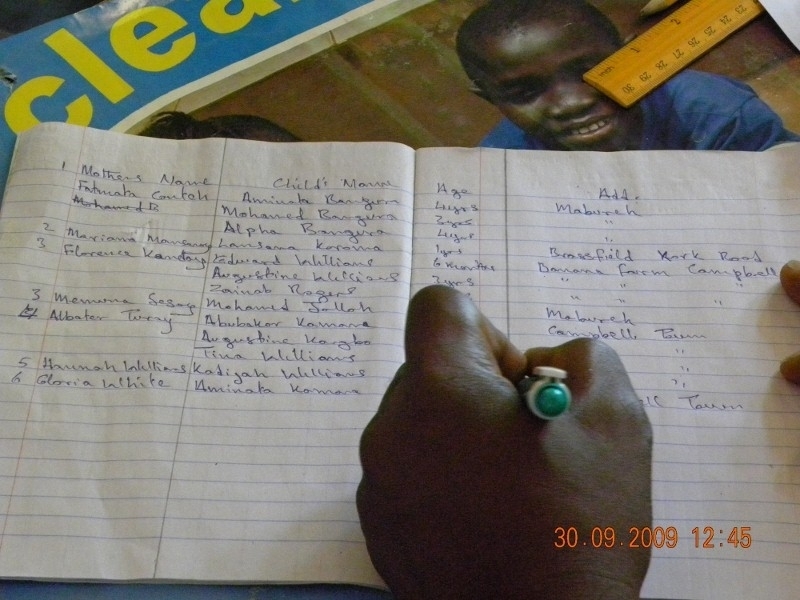 clea
23 24 25 26 27 28 29 30
1 Mothers Name Child's Name Age Add.
Fatmata Conteh Aminata Bangura 4yrs Mabureh
Mohamed B Mohamed Bangura 3yrs "
Alpha Bangura 4yrs "
2 Mariama Mansaray Lansana Koroma 1yrs Brassfield York Road
3 Florence Kanday Edward Williams 6 Months Banana Farm Campbell
Augustine Williams 2yrs " " " "
Zainab Rogers " " "
3 Memuna Sesay Mohamed Jalloh Mabureh
4 Albater Turay Abubakar Kamara Campbell Town
Augustine Kargbo "
Tina Williams "
5 Hannah Williams Kadijah Williams "
6 Gloria White Aminata Kamara ll Town
30.09.2009 12:45